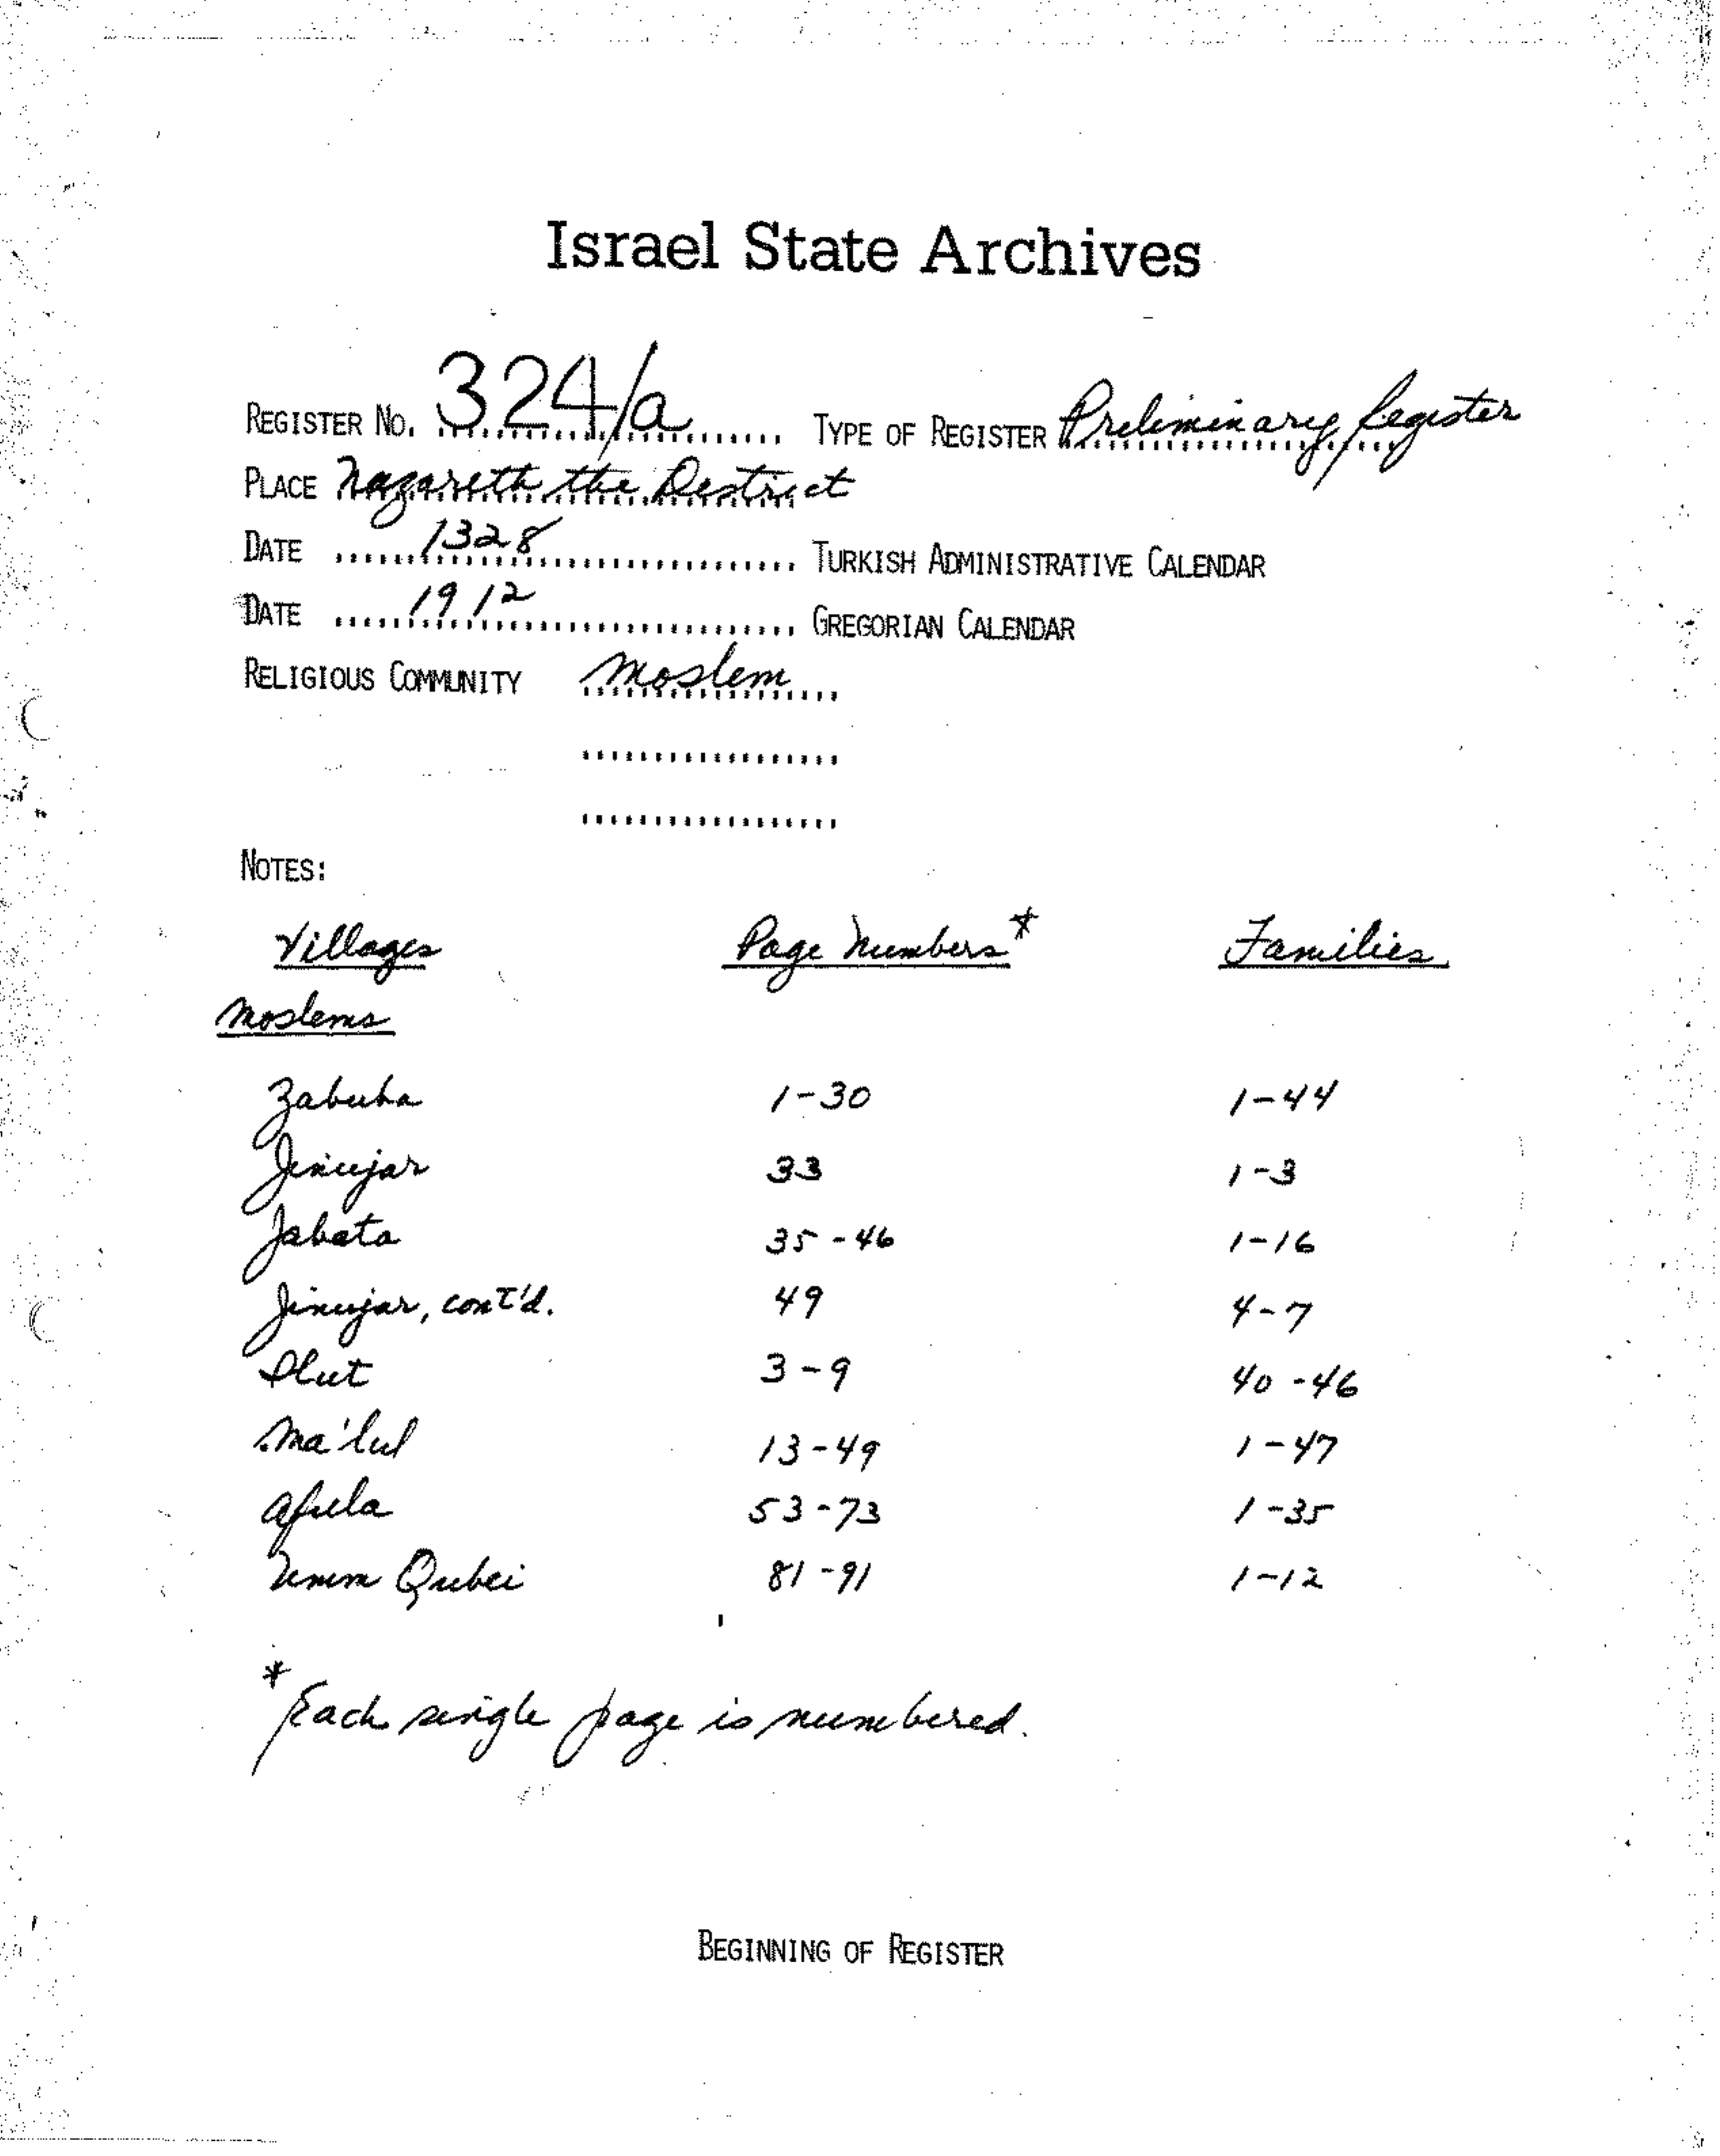 Israel State Archives
REGISTER NO. 324/a TYPE OF REGISTER Preliminary Register
PLACE Nazareth the District
DATE 1328 TURKISH ADMINISTRATIVE CALENDAR
DATE 1912 GREGORIAN CALENDAR
RELIGIOUS COMMUNITY Moslem
NOTES:
Villages Page Numbers* Families
Moslems
Zabuha 1-30 1-44
Jinujar 33 1-3
Jabata 35-46 1-16
Jinujar, cont'd. 49 4-7
Ilut 3-9 40-46
Ma'lul 13-49 1-47
Afula 53-73 1-35
Umm Qubei 81-91 1-12
* Each single page is numbered.
BEGINNING OF REGISTER